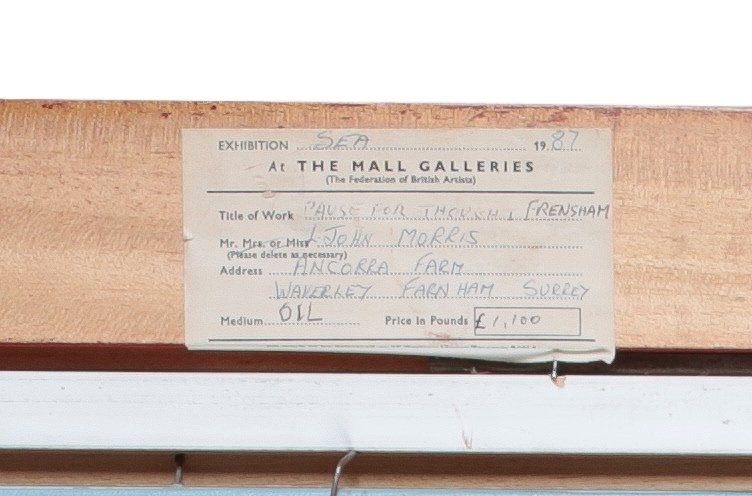 EXHIBITION SEA 1987
At THE MALL GALLERIES
(The Federation of British Artists)
Title of Work PAUSE FOR THOUGHT, FRENSHAM
Mr. Mrs. or Miss JOHN MORRIS
(Please delete as necessary)
Address ANCORRA FARM
WAVERLEY FARNHAM SURREY
Medium OIL Price in Pounds £1,100